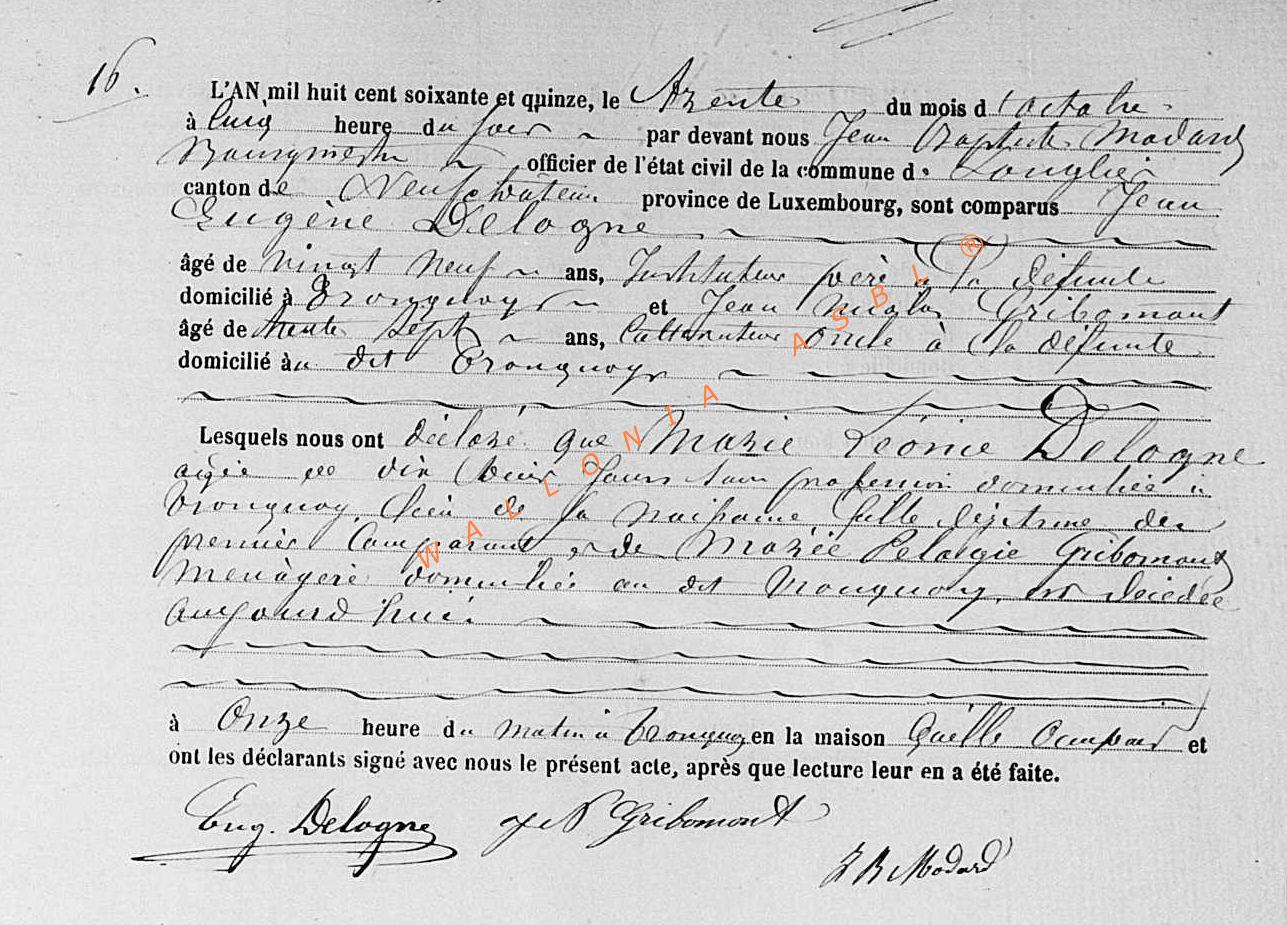 16.
L'AN mil huit cent soixante et quinze, le Trente du mois d'octobre
à Cinq heure du Soir par devant nous Jean Baptiste Modard
Bourgmestre officier de l'état civil de la commune de Longlier
canton de Neufchâteau province de Luxembourg, sont comparus Jean
Eugène Delogne
âgé de vingt neuf ans, Instituteur père à la défunte
domicilié à Tronquoy et Jean Nicolas Gribomont
âgé de trente Sept ans, Cultivateur oncle à la défunte
domicilié au dit Tronquoy
Lesquels nous ont déclaré que Marie Léonie Delogne
agée de dix huit Jours sans profession domiciliée à
Tronquoy, lieu de sa naissance, fille légitime du
premier Comparant & de Marie Pelagie Gribomont
menagère domiciliée au dit Tronquoy, est décédée
aujourd'hui
à Onze heure du matin à Tronquoy en la maison qu'elle Occupait et
ont les déclarants signé avec nous le présent acte, après que lecture leur en a été faite.
Eug. Delogne J N Gribomont
J B Modard
WALLONIA ASBL ®